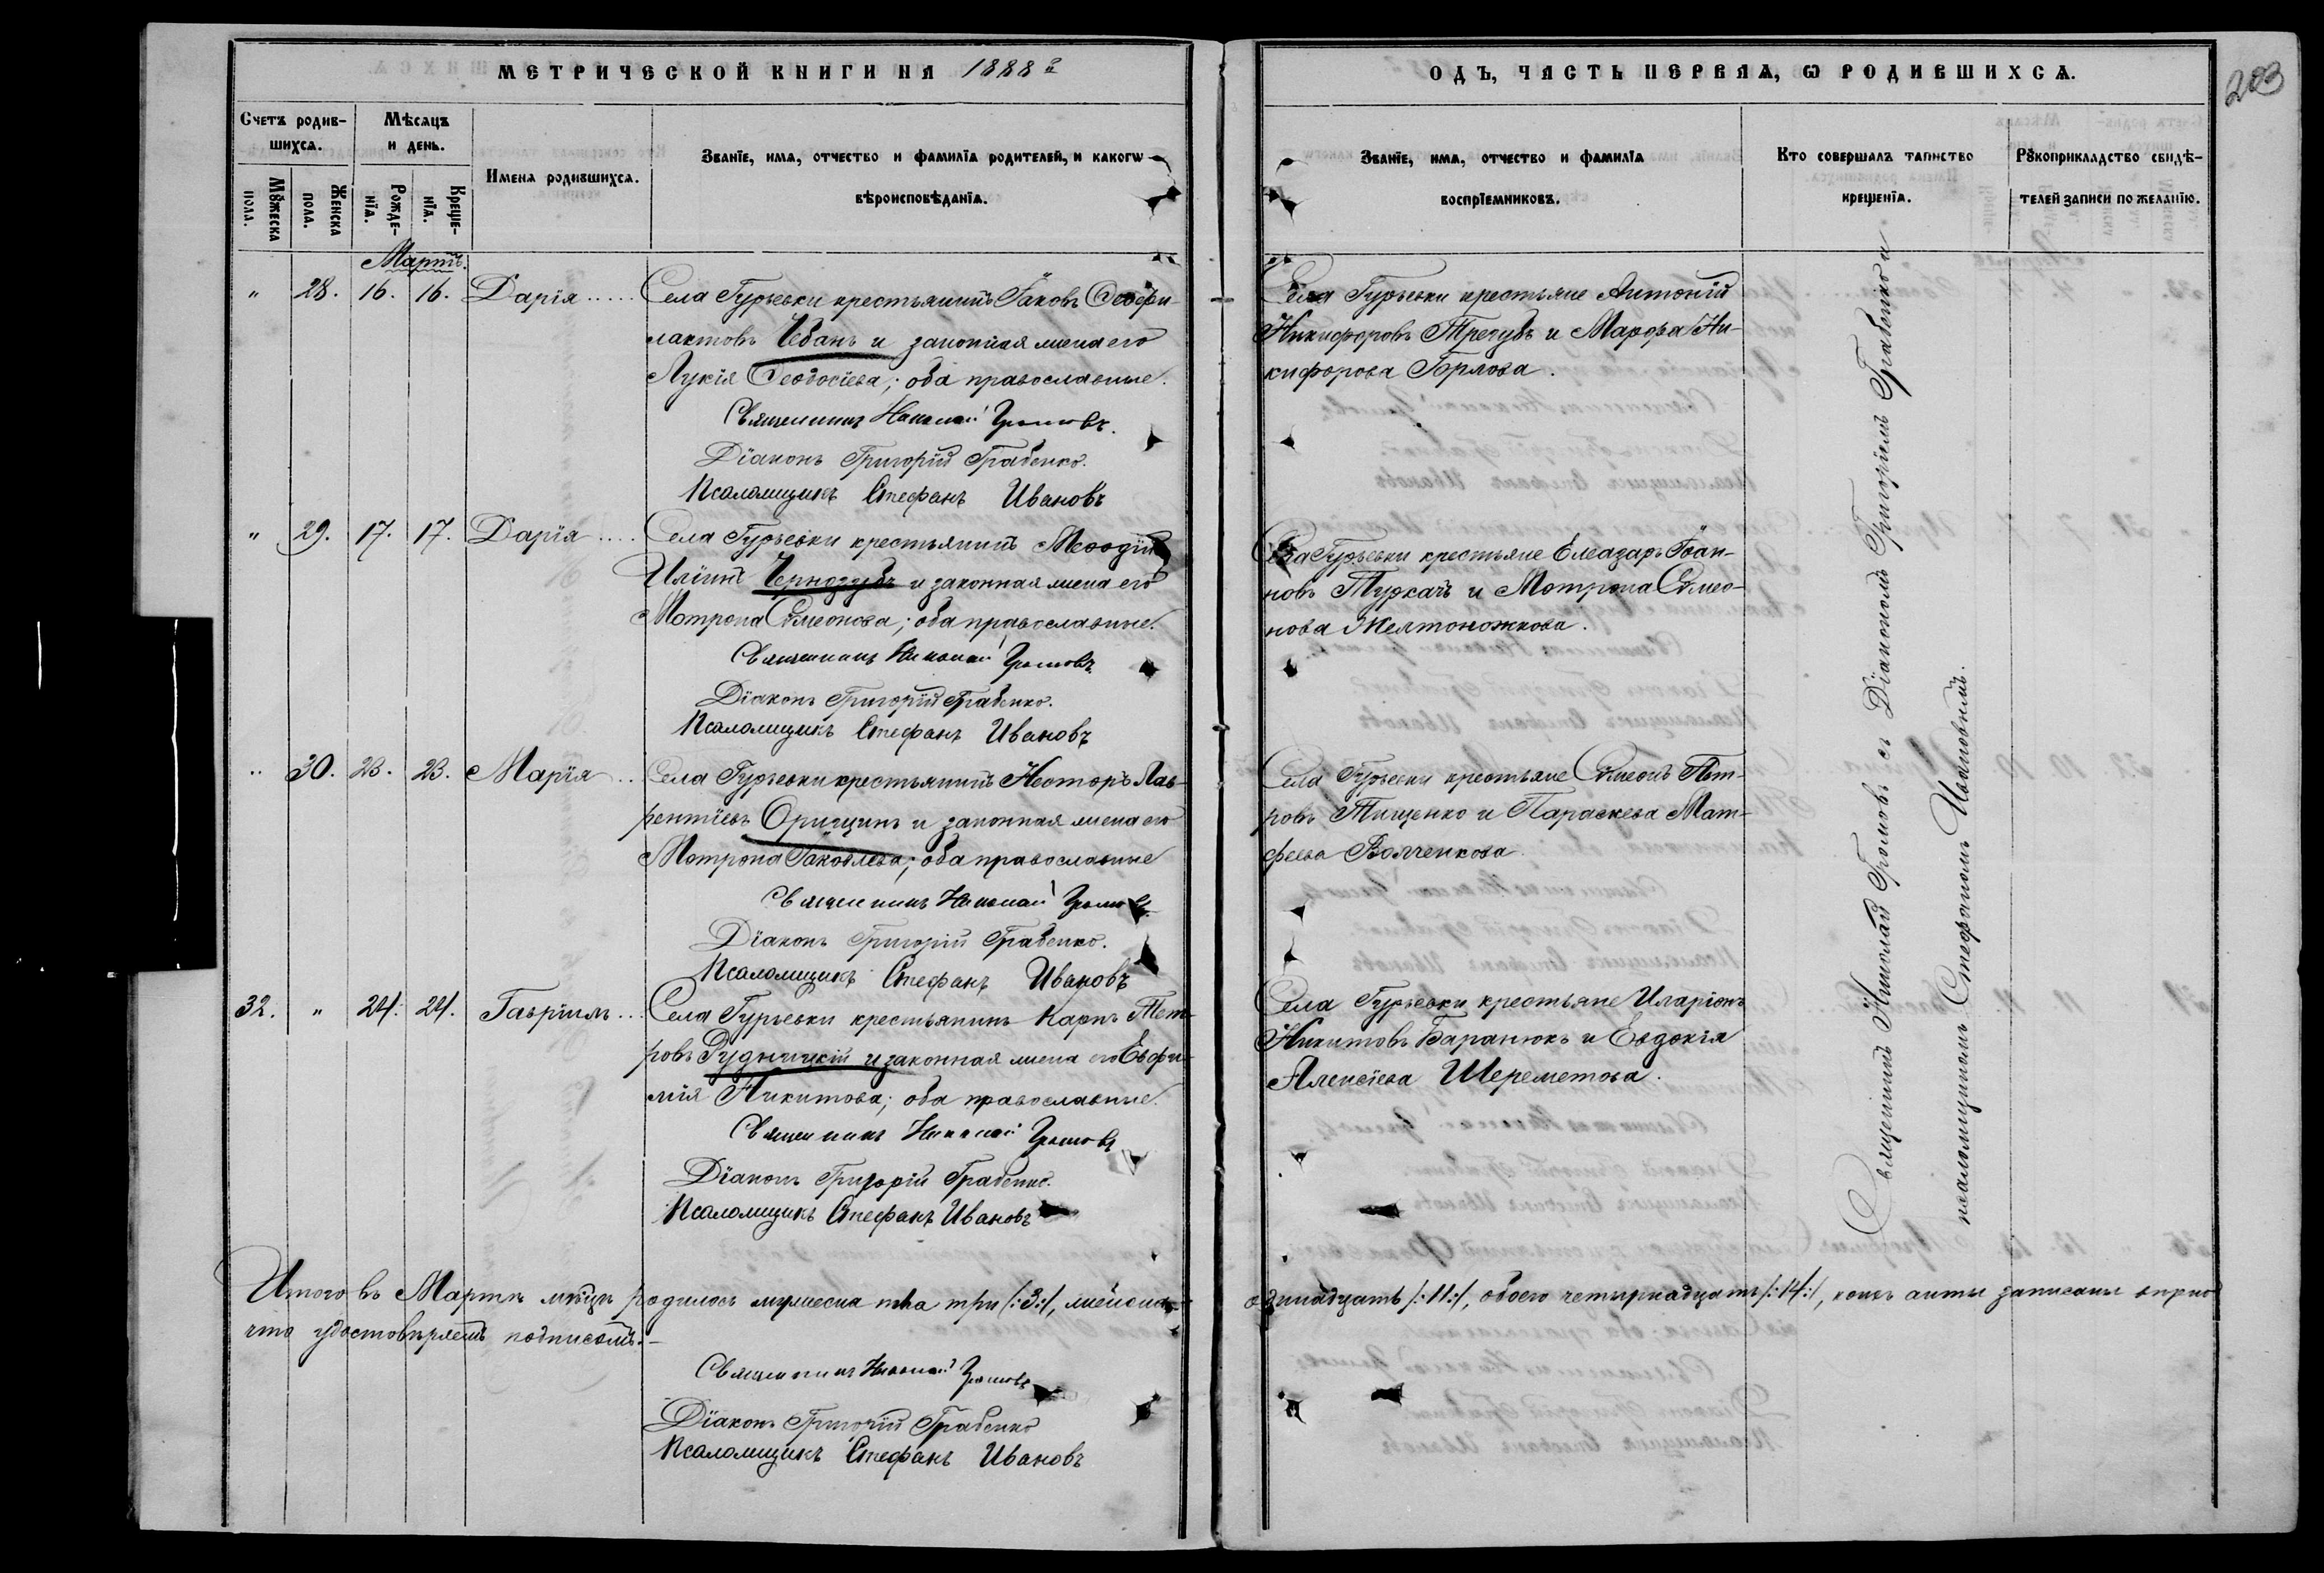 МЕТРИЧЕСКОЙ КНИГИ НА 1888 г
ОДЪ, ЧАСТЬ ПЕРВАЯ, Ѡ РОДИВШИХСѦ.
203
Счетъ родив-
шихсѧ.
Мѣсѧцъ
и день.
Мꙋжеска
пола.
Женска
пола.
Рожде-
нїѧ.
Креще-
нїѧ.
Имена родившихсѧ.
Званїе, имѧ, отчество и фамилїѧ родителей, и какогѡ
вѣроисповѣданїѧ.
Званїе, имѧ, отчество и фамилїѧ
воспрїемниковъ.
Кто совершалъ таинство
крещенїѧ.
Рꙋкоприкладство свидѣ-
телей записи по желанїю.
Мартъ.
" 28. 16. 16. Дарія.....
Села Гурьевки крестьянинъ Іаковъ Ѳеофи
лактовъ Чебанъ и законная жена его
Лукія Ѳеодосіева; оба православные.
Священникъ Николай Громовъ.
Діаконъ Григорій Грабенко.
Псаломщикъ Стефанъ Ивановъ
Села Гурьевки крестьяне Антоній
Никифоровъ Трегубъ и Марфа Ни-
кифорова Горлова.
" 29. 17. 17. Дарія....
Села Гурьевки крестьянинъ Меѳодій
Иліинъ Чернозубъ и законная жена его
Мотрона Симеонова; оба православные.
Священникъ Николай Громовъ
Діаконъ Григорій Грабенко.
Псаломщикъ Стефанъ Ивановъ
Села Гурьевки крестьяне Елеазаръ Іоан-
новъ Туркачъ и Мотрона Симео-
нова Желтоножкова.
" 30. 23. 23. Марія..
Села Гурьевки крестьянинъ Несторъ Лав-
рентіевъ Орищинъ и законная жена его
Мотрона Іаковлева; оба православные
Священникъ Николай Громовъ
Діаконъ Григорій Грабенко.
Псаломщикъ Стефанъ Ивановъ
Села Гурьевки крестьяне Симеонъ Пет-
ровъ Тищенко и Параскева Мат-
феева Волченкова.
32. " 24. 24. Гавріилъ...
Села Гурьевки крестьянинъ Карпъ Пет-
ровъ Рудницкій и законная жена его Евфи-
мія Никитова; оба православные.
Священникъ Николай Громовъ
Діаконъ Григорій Грабенко.
Псаломщикъ Стефанъ Ивановъ
Села Гурьевки крестьяне Иларіонъ
Никитовъ Баранюкъ и Евдокія
Алексіева Шереметова.
Священникъ Николай Громовъ съ Діакономъ Григоріемъ Грабенкою и
псаломщикомъ Стефаномъ Ивановымъ.
Итого въ Мартѣ мѣсцѣ родилось мужеска пола три /:3:/, женска одинадцать /:11:/, обоего четырнадцать /:14:/, коихъ акты записаны вѣрно
что удостовѣряемъ подписомъ.-
Священникъ Николай Громовъ
Діаконъ Григорій Грабенко
Псаломщикъ Стефанъ Ивановъ